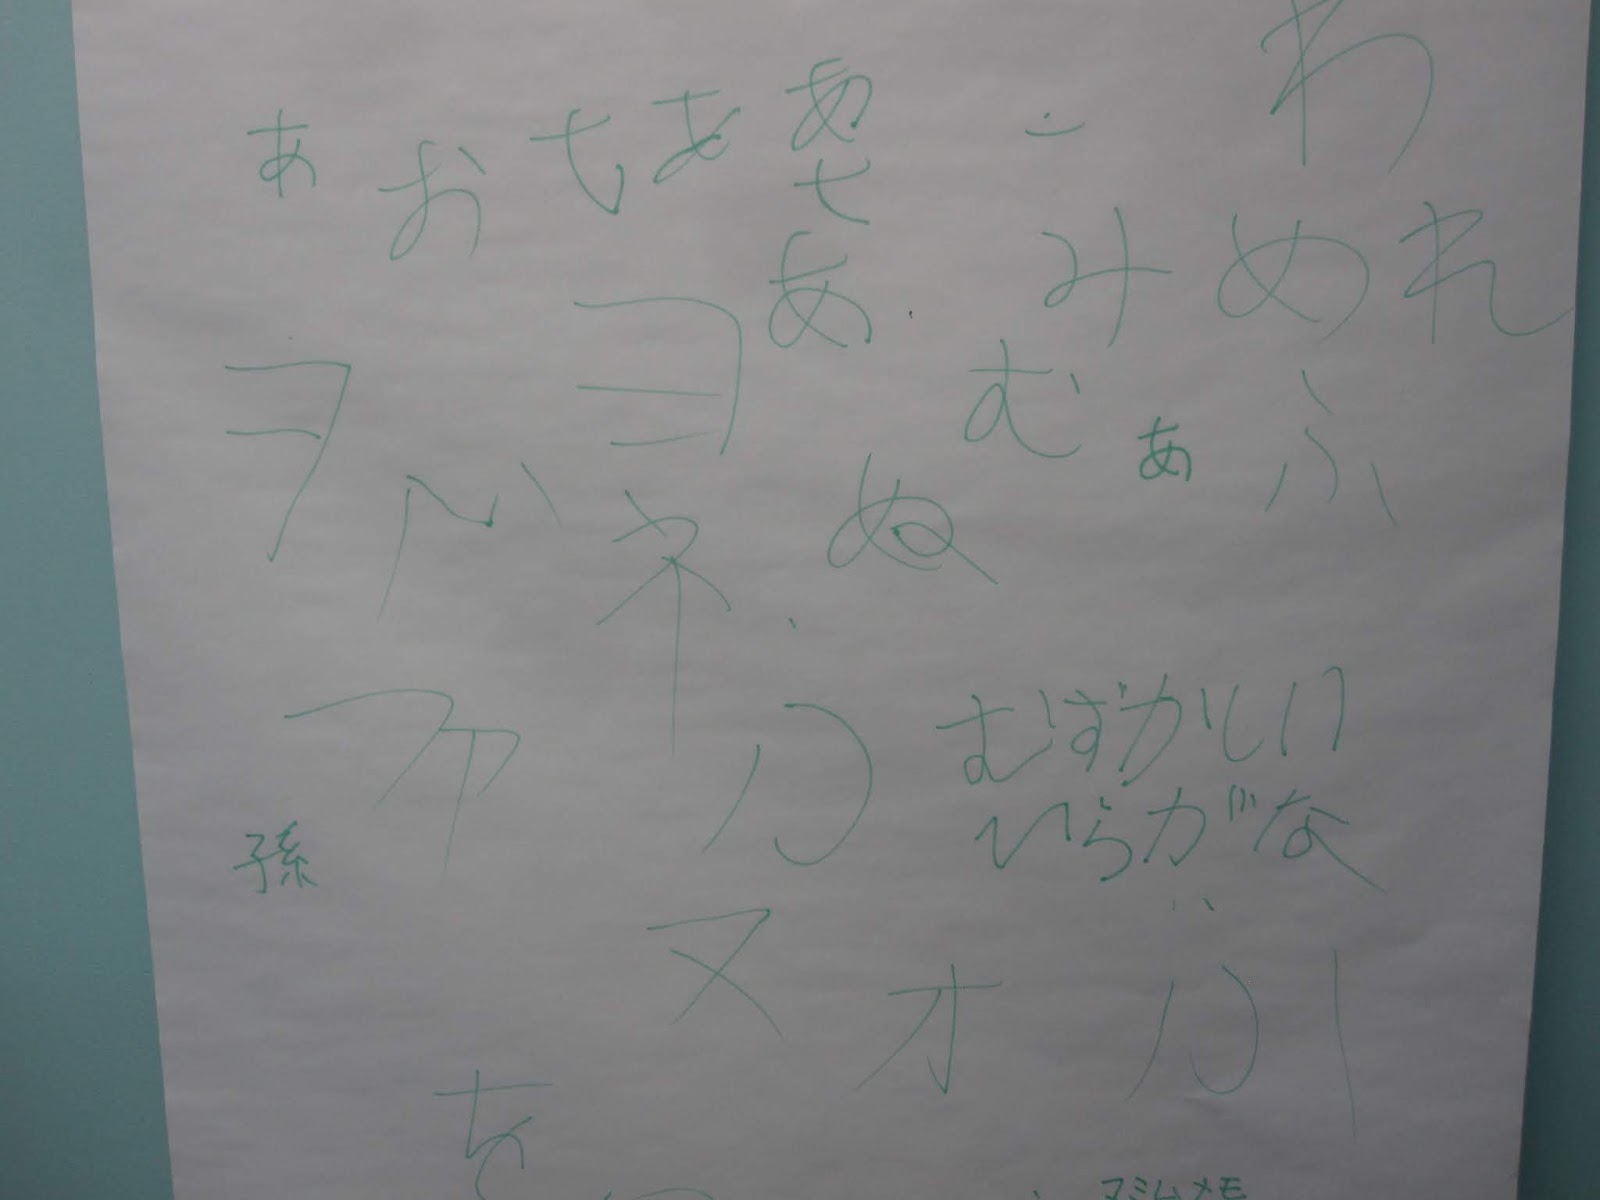 わ
あ お も あ あ
せ
あ み め れ
ヲ ヨ む あ ふ
ネ ぬ
ア むずかしい
孫 ひらがな
ヌ オ
を
マミムメモ